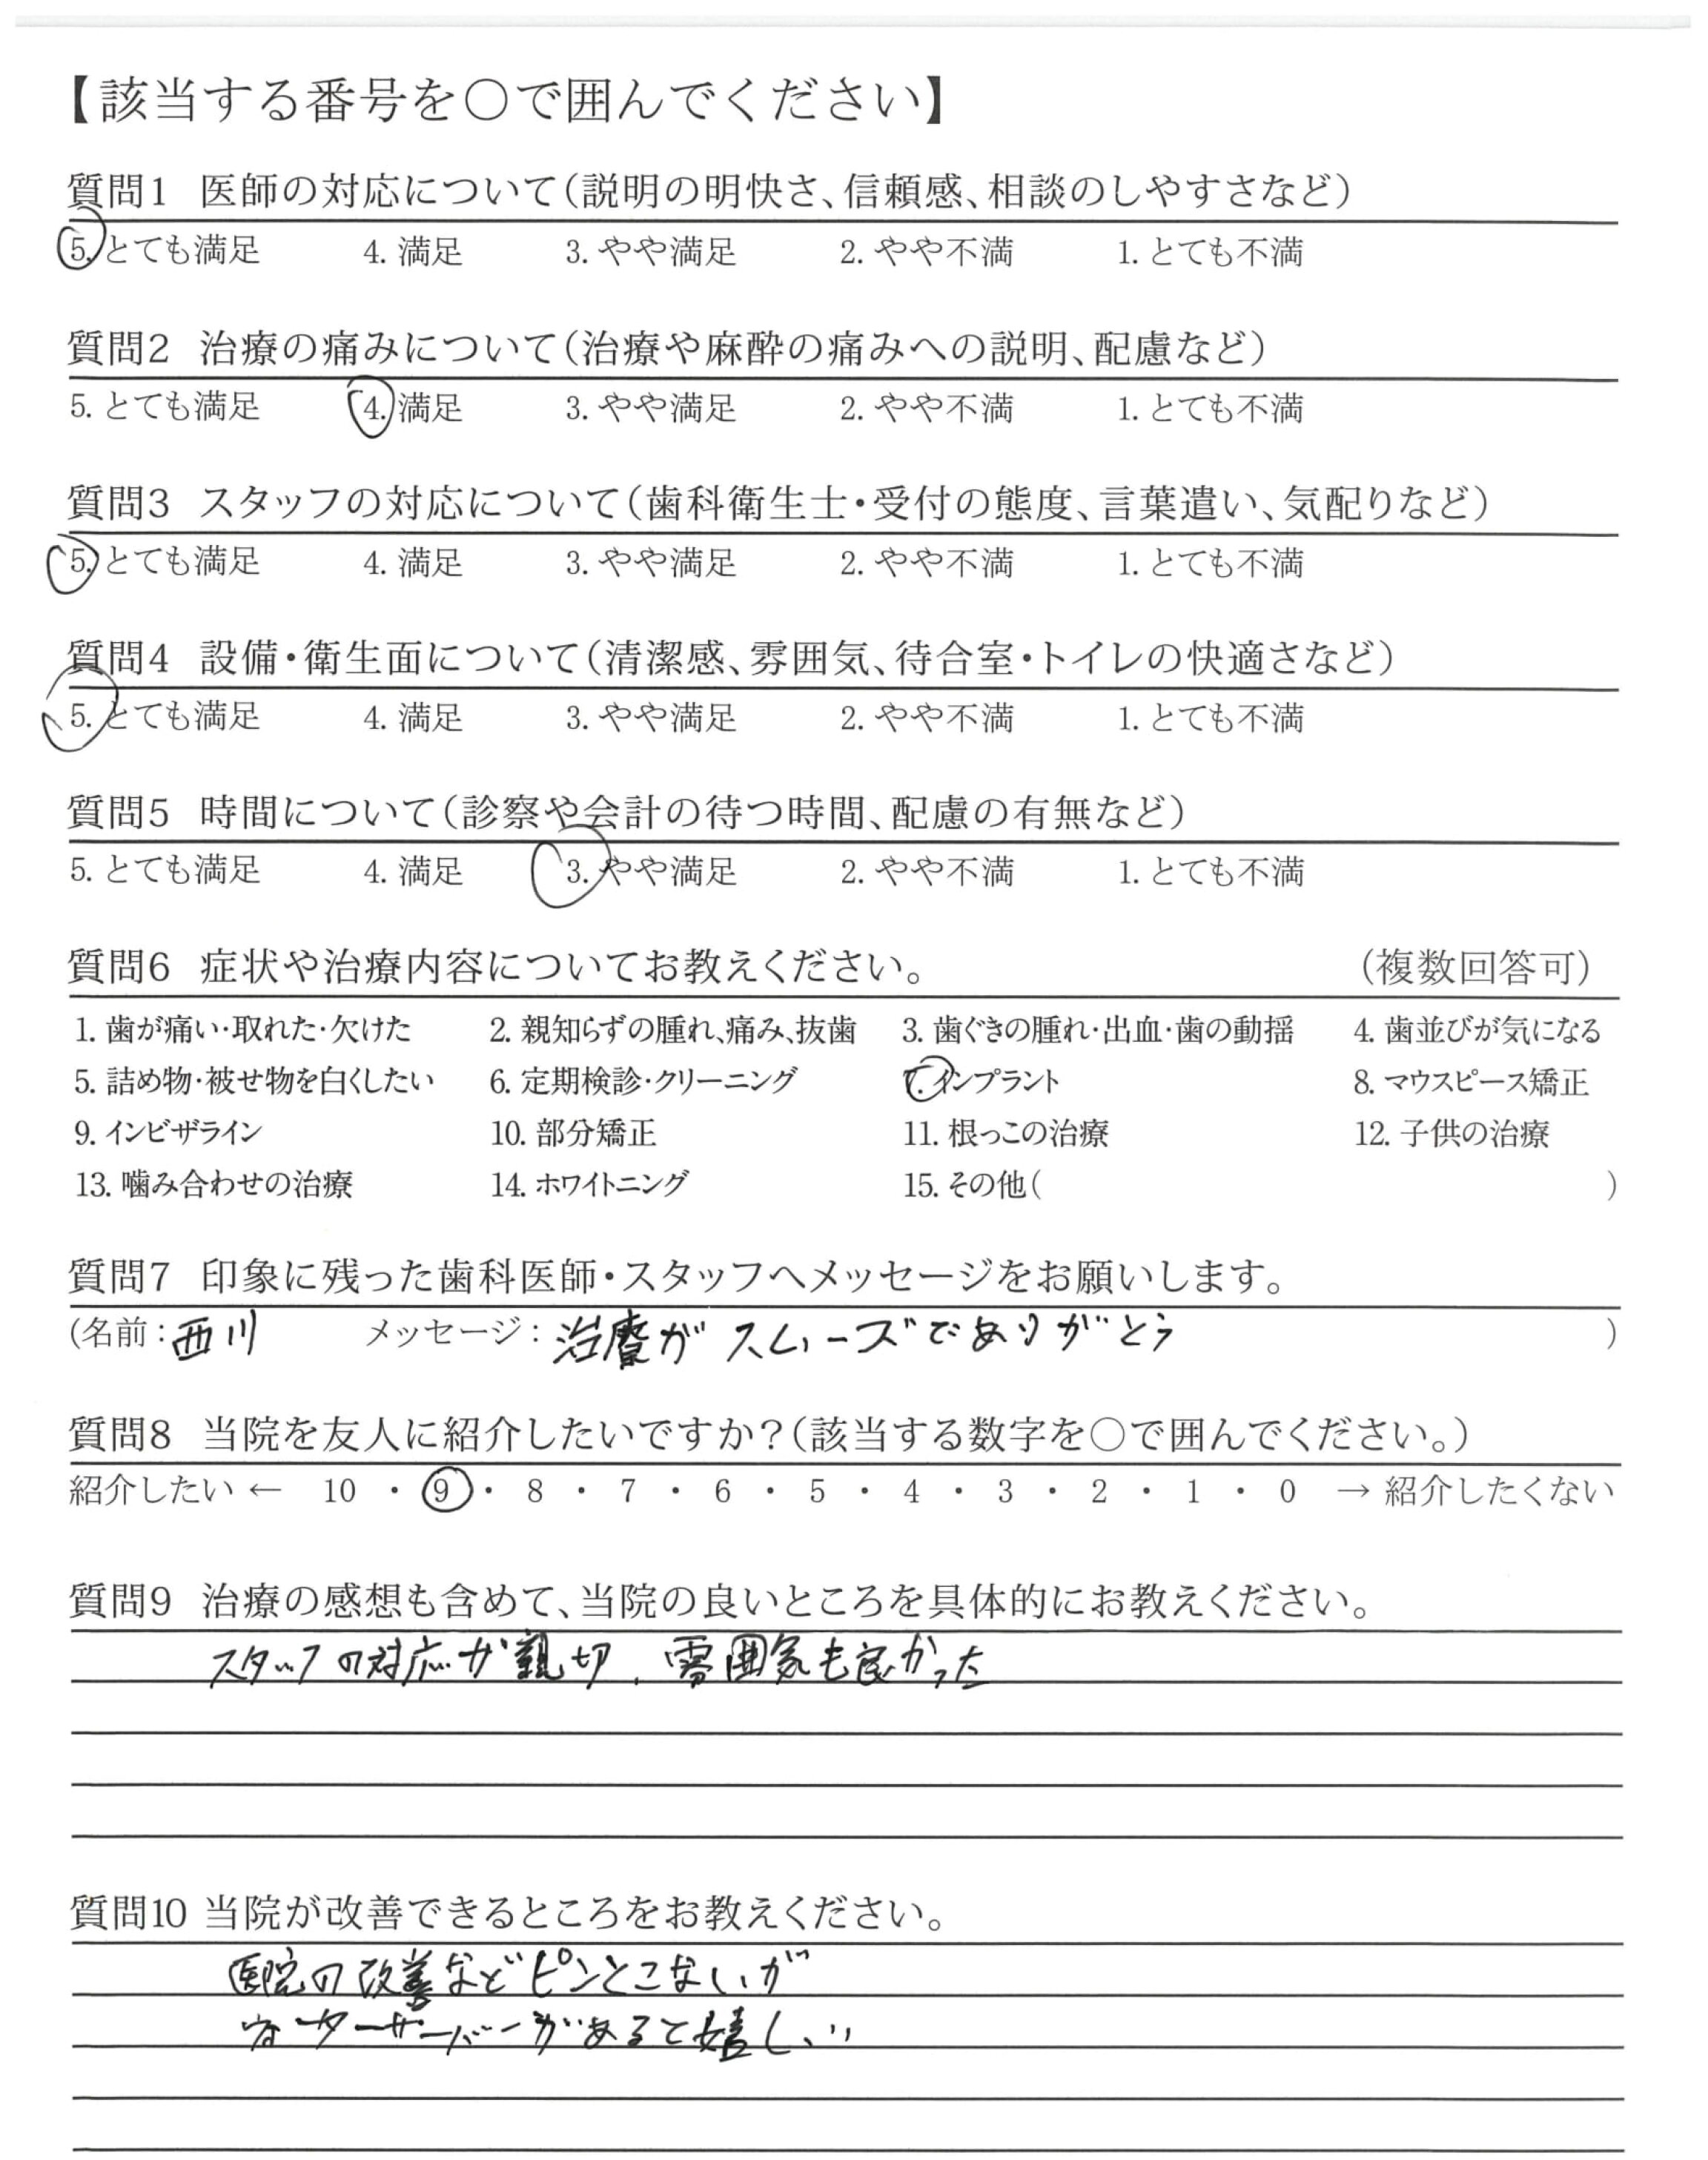 【該当する番号を○で囲んでください】
質問1 医師の対応について(説明の明快さ、信頼感、相談のしやすさなど)
5. とても満足 4. 満足 3. やや満足 2. やや不満 1. とても不満
質問2 治療の痛みについて(治療や麻酔の痛みへの説明、配慮など)
5. とても満足 4. 満足 3. やや満足 2. やや不満 1. とても不満
質問3 スタッフの対応について(歯科衛生士・受付の態度、言葉遣い、気配りなど)
5. とても満足 4. 満足 3. やや満足 2. やや不満 1. とても不満
質問4 設備・衛生面について(清潔感、雰囲気、待合室・トイレの快適さなど)
5. とても満足 4. 満足 3. やや満足 2. やや不満 1. とても不満
質問5 時間について(診察や会計の待つ時間、配慮の有無など)
5. とても満足 4. 満足 3. やや満足 2. やや不満 1. とても不満
質問6 症状や治療内容についてお教えください。 (複数回答可)
1. 歯が痛い・取れた・欠けた 2. 親知らずの腫れ、痛み、抜歯 3. 歯ぐきの腫れ・出血・歯の動揺 4. 歯並びが気になる
5. 詰め物・被せ物を白くしたい 6. 定期検診・クリーニング 7. インプラント 8. マウスピース矯正
9. インビザライン 10. 部分矯正 11. 根っこの治療 12. 子供の治療
13. 噛み合わせの治療 14. ホワイトニング 15. その他( )
質問7 印象に残った歯科医師・スタッフへメッセージをお願いします。
(名前：西川 メッセージ：治療がスムーズでありがとう )
質問8 当院を友人に紹介したいですか？(該当する数字を○で囲んでください。)
紹介したい ← 10 ・ 9 ・ 8 ・ 7 ・ 6 ・ 5 ・ 4 ・ 3 ・ 2 ・ 1 ・ 0 → 紹介したくない
質問9 治療の感想も含めて、当院の良いところを具体的にお教えください。
スタッフの対応が親切、雰囲気も良かった
質問10 当院が改善できるところをお教えください。
医院の改善などピンとこないが
ウォーターサーバーがあると嬉しい